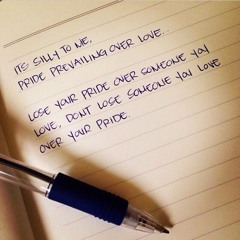 ITS SILLY TO ME,
PRIDE PREVAILING OVER LOVE...
LOSE YOUR PRIDE OVER SOMEONE YOU
LOVE, DONT LOSE SOMEONE YOU LOVE
OVER YOUR PRIDE.